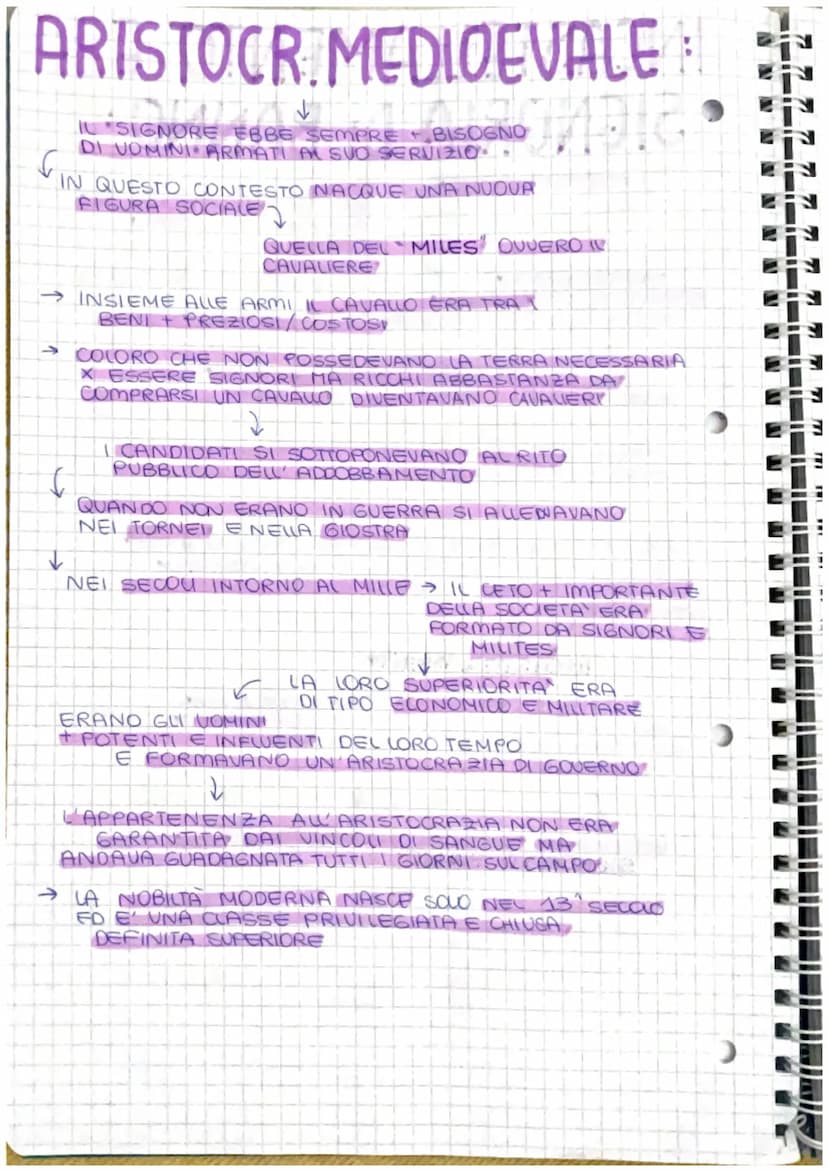 ARISTOCR. MEDIOEVALE:
IL SIGNORE EBBE SEMPRE + BISOGNO
DI UOMINI ARMATI AL SUO SERVIZIO.
IN QUESTO CONTESTO NACQUE UNA NUOVA
FIGURA SOCIALE
QUELLA DEL "MILES" OVVERO IL
CAVALIERE
→ INSIEME ALLE ARMI IL CAVALLO ERA TRA I
BENI + PREZIOSI/COSTOSI
→ COLORO CHE NON POSSEDEVANO LA TERRA NECESSARIA
X ESSERE SIGNORI MA RICCHI ABBASTANZA DA
COMPRARSI UN CAVALLO DIVENTAVANO CAVALIERI
I CANDIDATI SI SOTTOPONEVANO AL RITO
PUBBLICO DELL'ADDOBBAMENTO
QUANDO NON ERANO IN GUERRA SI ALLENAVANO
NEI TORNEI E NELLA GIOSTRA
NEI SECOLI INTORNO AL MILLE → IL CETO + IMPORTANTE
DELLA SOCIETA' ERA
FORMATO DA SIGNORI E
MILITES
LA LORO SUPERIORITA' ERA
DI TIPO ECONOMICO E MILITARE
ERANO GLI UOMINI
+ POTENTI E INFLUENTI DEL LORO TEMPO
E FORMAVANO UN'ARISTOCRAZIA DI GOVERNO
L'APPARTENENZA ALL'ARISTOCRAZIA NON ERA
GARANTITA DAI VINCOLI DI SANGUE MA
ANDAVA GUADAGNATA TUTTI I GIORNI SUL CAMPO
→ LA NOBILTÀ MODERNA NASCE SOLO NEL 13° SECOLO
ED E' UNA CLASSE PRIVILEGIATA E CHIUSA,
DEFINITA SUPERIORE